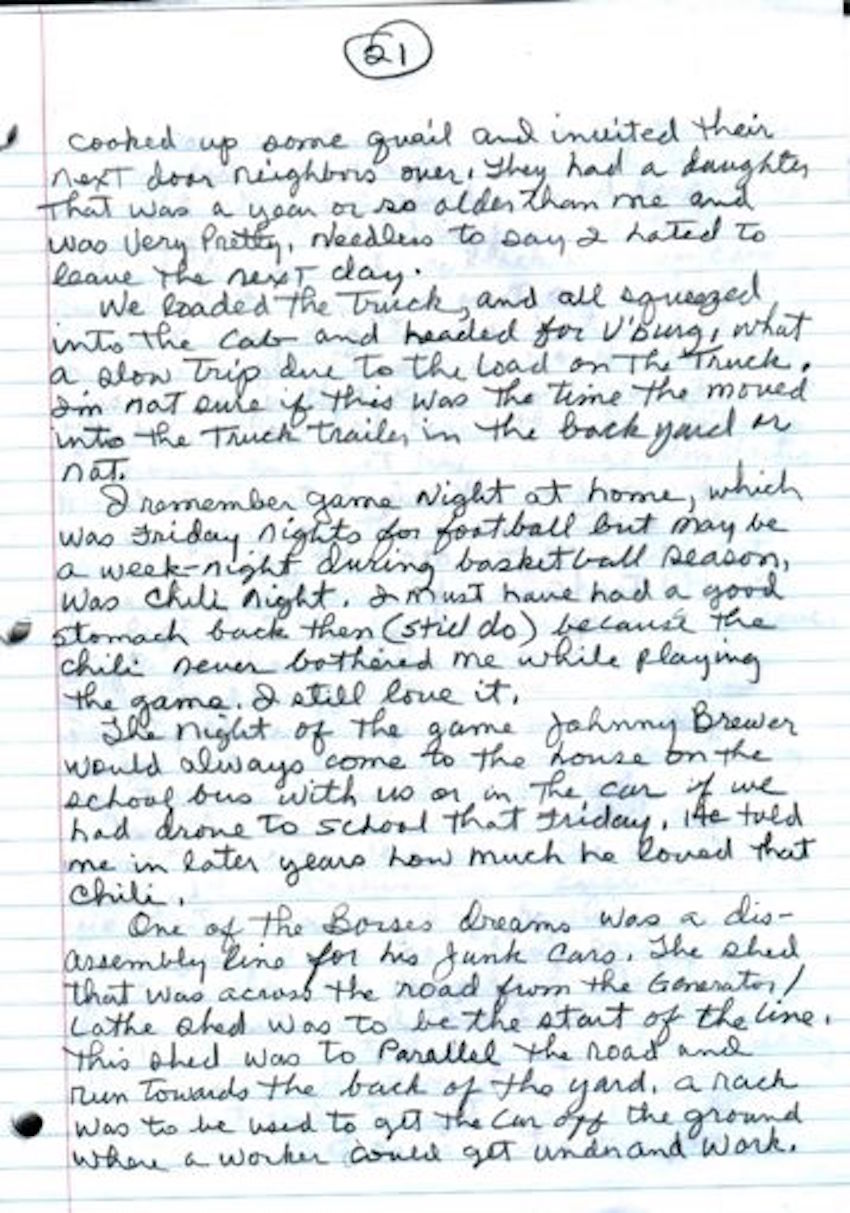 21
cooked up some quail and invited their
next door neighbors over. They had a daughter
that was a year or so older than me and
was very pretty. Needless to say I hated to
leave the next day.
We loaded the truck, and all squeezed
into the cab and headed for V'burg, what
a slow trip due to the load on the truck.
I'm not sure if this was the time the moved
into the truck trailer in the back yard or
not.
I remember game night at home, which
was Friday nights for football but may be
a week-night during basketball season,
was chili night. I must have had a good
stomach back then (still do) because the
chili never bothered me while playing
the game. I still love it.
The night of the game Johnny Brewer
would always come to the house on the
school bus with us or in the car if we
had drove to school that Friday. He told
me in later years how much he loved that
chili.
One of the Bosses dreams was a dis-
assembly line for his junk cars. The shed
that was across the road from the Generator/
Lathe shed was to be the start of the line.
This shed was to parallel the road and
run towards the back of the yard. A rack
was to be used to get the car off the ground
where a worker could get under and work.